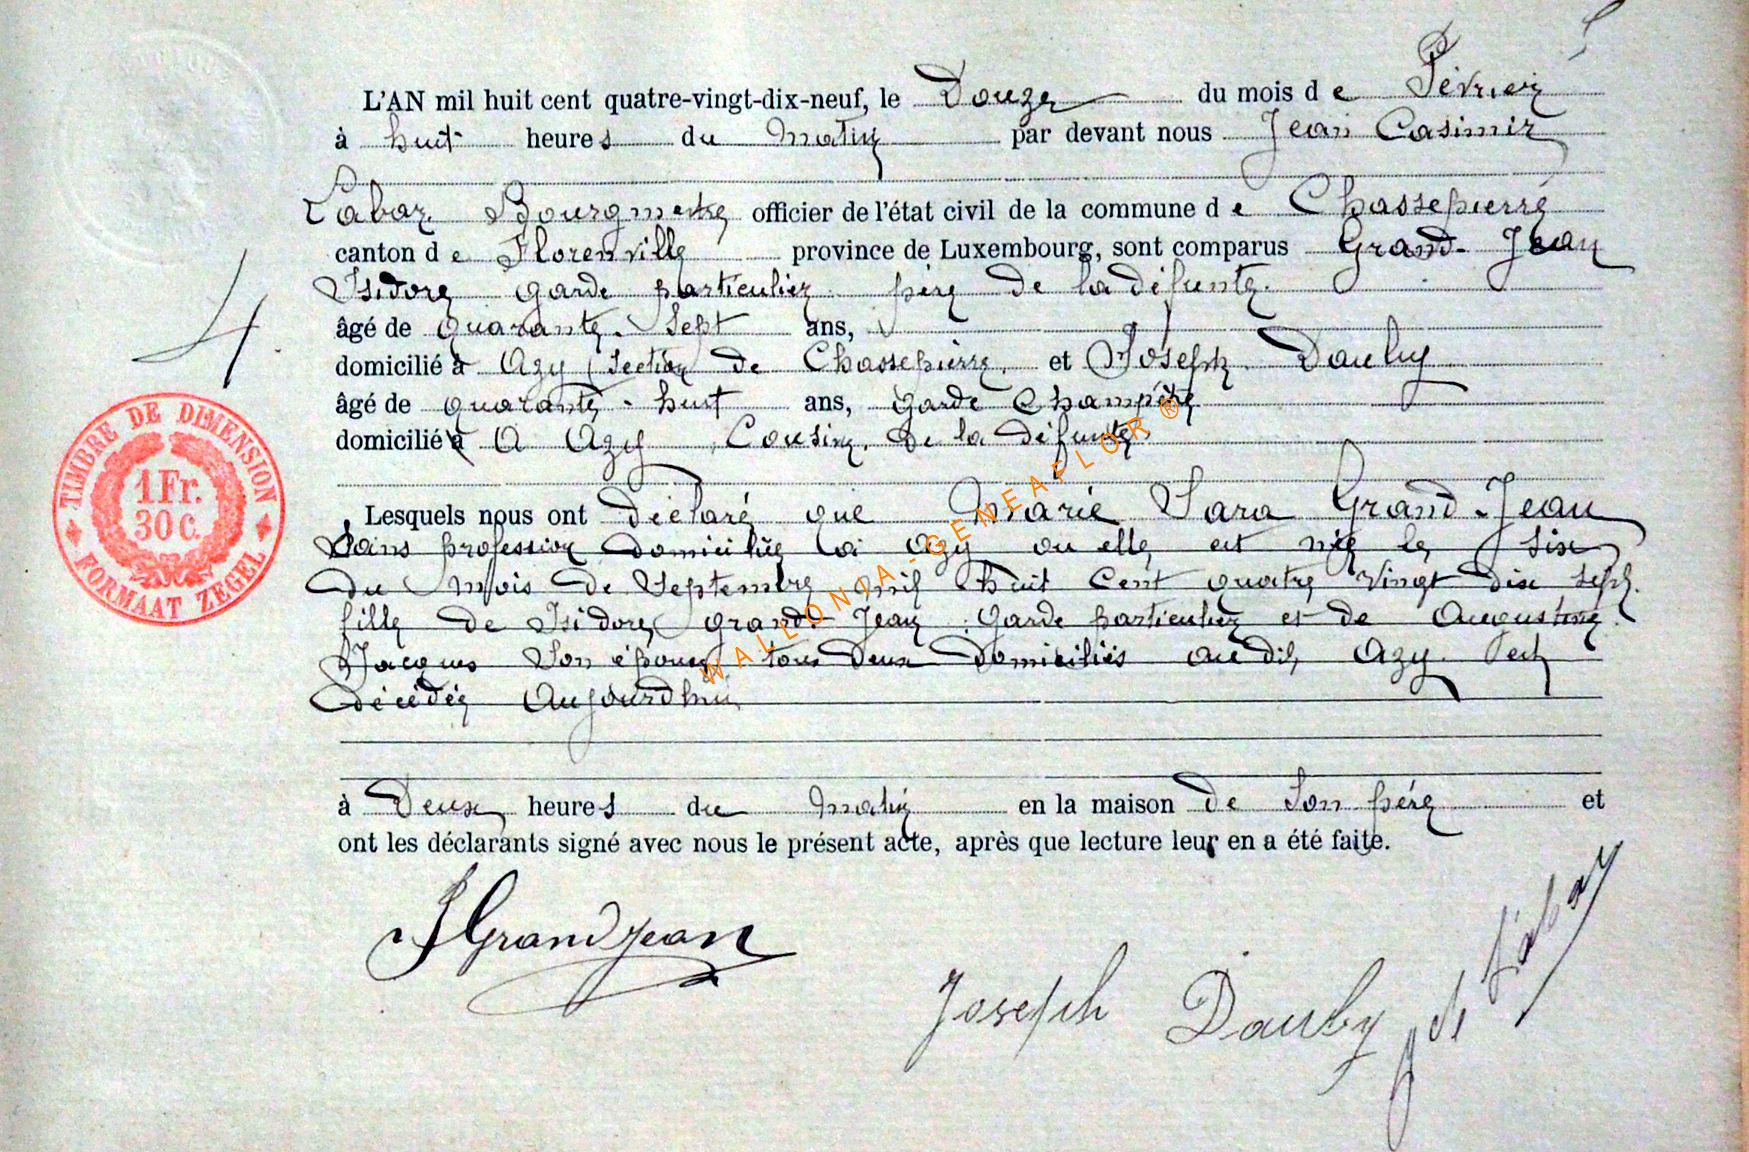 L'AN mil huit cent quatre-vingt-dix-neuf, le Douze du mois de Février
à huit heures du Matin par devant nous Jean Casimir
Labar Bourgmestre officier de l'état civil de la commune de Chassepierre
canton de Florenville province de Luxembourg, sont comparus Grand-Jean
Isidore garde particulier père de la défunte.
âgé de quarante-Sept ans,
domicilié à Azy, Section de Chassepierre, et Joseph Dauby
âgé de quarante-huit ans, garde Champêtre
domicilié à A Azy, Cousin de la défunte
Lesquels nous ont déclaré que Marie Sara Grand-Jean
Sans profession domiciliée à Azy ou elle est née le Six
du Mois de Septembre mil huit Cent quatre Vingt dix Sept.
fille de Isidore grand-Jean garde particulier et de Augustine
Jacques Son épouse tous deux domiciliés au dit Azy. Est
décédée Aujourdhui
à Deux heures du Matin en la maison de Son père et
ont les déclarants signé avec nous le présent acte, après que lecture leur en a été faite.
4
TIMBRE DE DIMENSION
1 Fr.
30 C.
FORMAAT ZEGEL
WALLONIA-GENEAFLOR ®
I Grandjean
Joseph Dauby